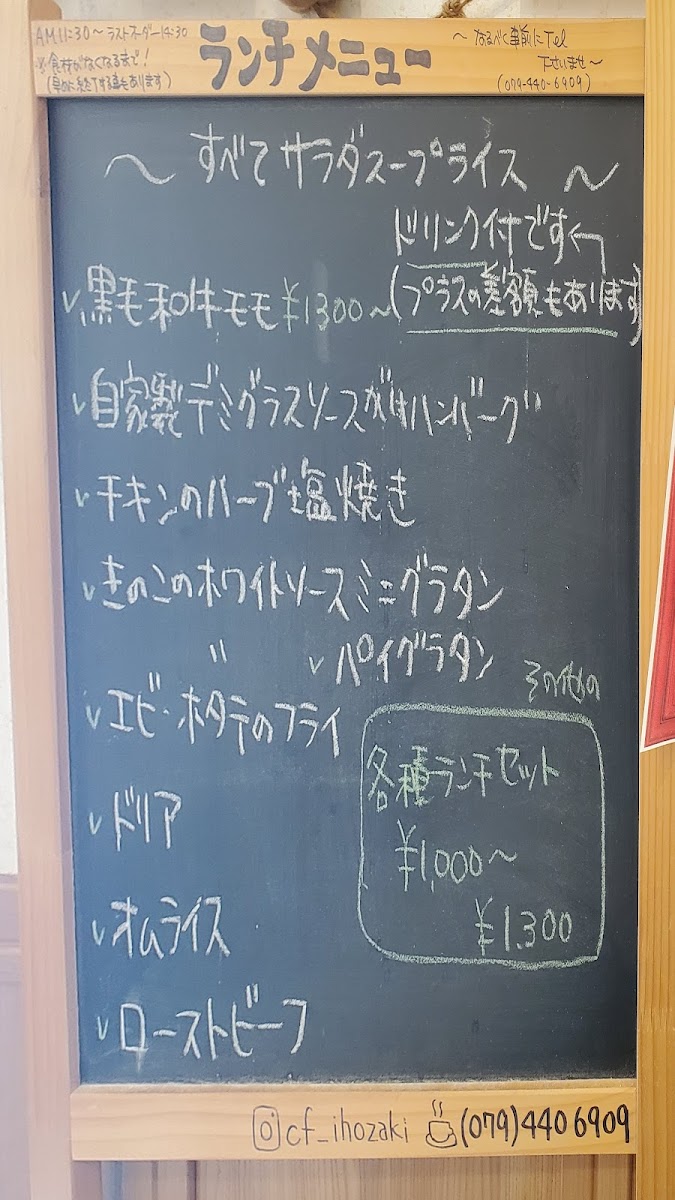 AM11:30～ラストオーダー14:30
※食材がなくなるまで！
(早めに終了する事もあります)
ランチメニュー
～なるべく事前にTel
下さいませ～
(079-440-6909)
～すべてサラダスープライス～
ドリンク付です
(プラスの差額もあります)
✓黒毛和牛モモ ¥1300～
✓自家製デミグラスソースがけハンバーグ
✓チキンのハーブ塩焼き
✓きのこのホワイトソースミニグラタン
〃 ✓パイグラタン
✓エビ・ホタテのフライ
✓ドリア
✓オムライス
✓ローストビーフ
その他の
各種ランチセット
¥1,000～
¥1,300
cf_ihozaki (079)440 6909